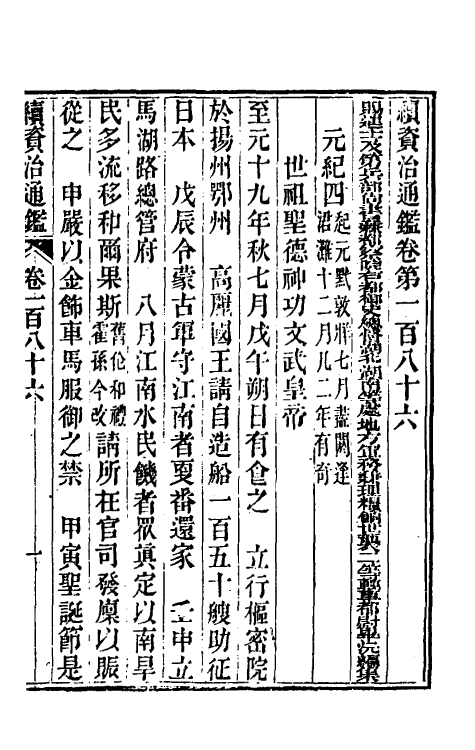 續資治通鑑卷第一百八十六
賜進士及第兵部尚書兼都察院右都御史總督湖北湖南等處地方軍務兼理糧餉世襲二等輕車都尉畢沅編集
元紀四 起元黓敦牂七月盡閼逢涒灘十二月凡二年有奇
世祖聖德神功文武皇帝
至元十九年秋七月戊午朔日有食之 立行樞密院
於揚州鄂州 高麗國王請自造船一百五十艘助征
日本 戊辰令蒙古軍守江南者更番還家 壬申立
馬湖路總管府 八月江南水民饑者眾真定以南旱
民多流移和爾果斯舊倫和禮霍孫今改請所在官司發廩以賑
從之 申嚴以金飾車馬服御之禁 甲寅聖誕節是
續資治通鑑 卷一百八十六 一